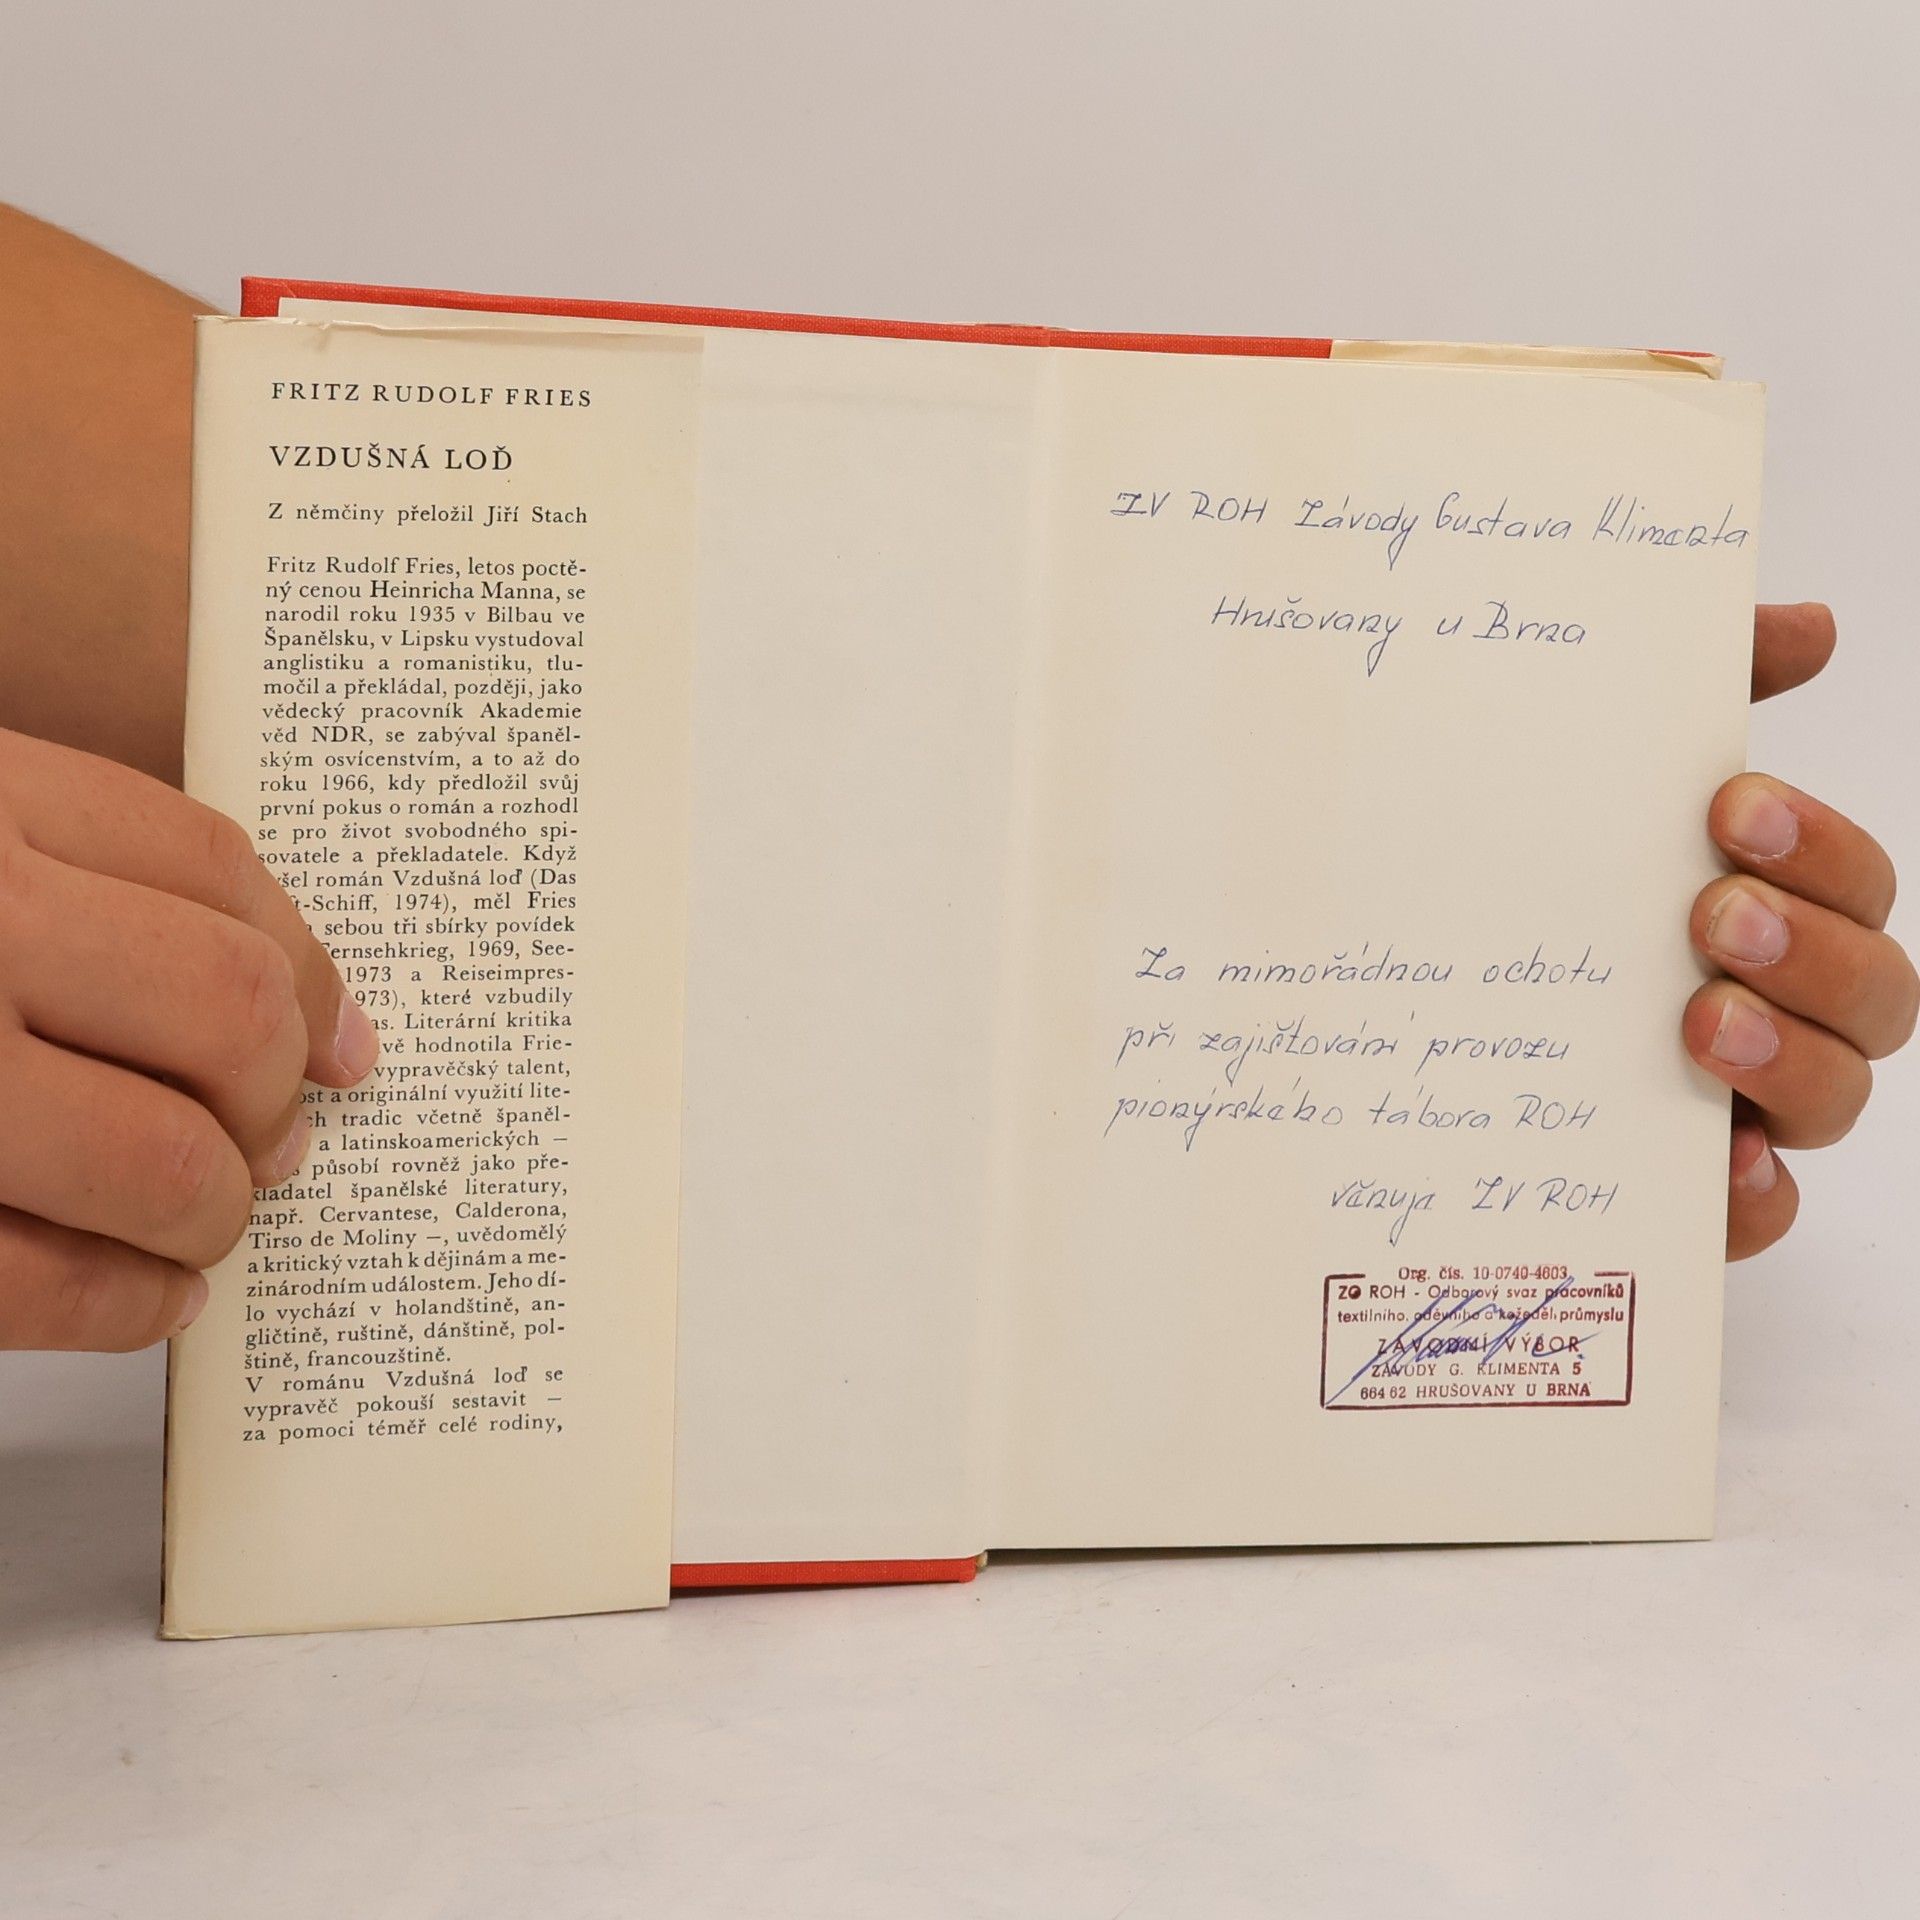 FRITZ RUDOLF FRIES
VZDUŠNÁ LOĎ
Z němčiny přeložil Jiří Stach
Fritz Rudolf Fries, letos poctě-
ný cenou Heinricha Manna, se
narodil roku 1935 v Bilbau ve
Španělsku, v Lipsku vystudoval
anglistiku a romanistiku, tlu-
močil a překládal, později, jako
vědecký pracovník Akademie
věd NDR, se zabýval španěl-
ským osvícenstvím, a to až do
roku 1966, kdy předložil svůj
první pokus o román a rozhodl
se pro život svobodného spi-
sovatele a překladatele. Když
šel román Vzdušná loď (Das
t-Schiff, 1974), měl Fries
sebou tři sbírky povídek
ernsehkrieg, 1969, See-
1973 a Reiseimpres-
973), které vzbudily
as. Literární kritika
vě hodnotila Frie-
vypravěčský talent,
ost a originální využití lite-
ch tradic včetně španěl-
a latinskoamerických –
s působí rovněž jako pře-
kladatel španělské literatury,
např. Cervantese, Calderona,
Tirso de Moliny –, uvědomělý
a kritický vztah k dějinám a me-
zinárodním událostem. Jeho dí-
lo vychází v holandštině, an-
gličtině, ruštině, dánštině, pol-
štině, francouzštině.
V románu Vzdušná loď se
vypravěč pokouší sestavit –
za pomoci téměř celé rodiny,
ZV ROH Závody Gustava Klimenta
Hrušovany u Brna
Za mimořádnou ochotu
při zajišťování provozu
pionýrského tábora ROH
věnuje ZV ROH
Org. čís. 10-0740-4603
ZO ROH - Odborový svaz pracovníků
textilního, oděvního a kožeděl. průmyslu
ZÁVODNÍ VÝBOR
ZÁVODY G. KLIMENTA 5
664 62 HRUŠOVANY U BRNA